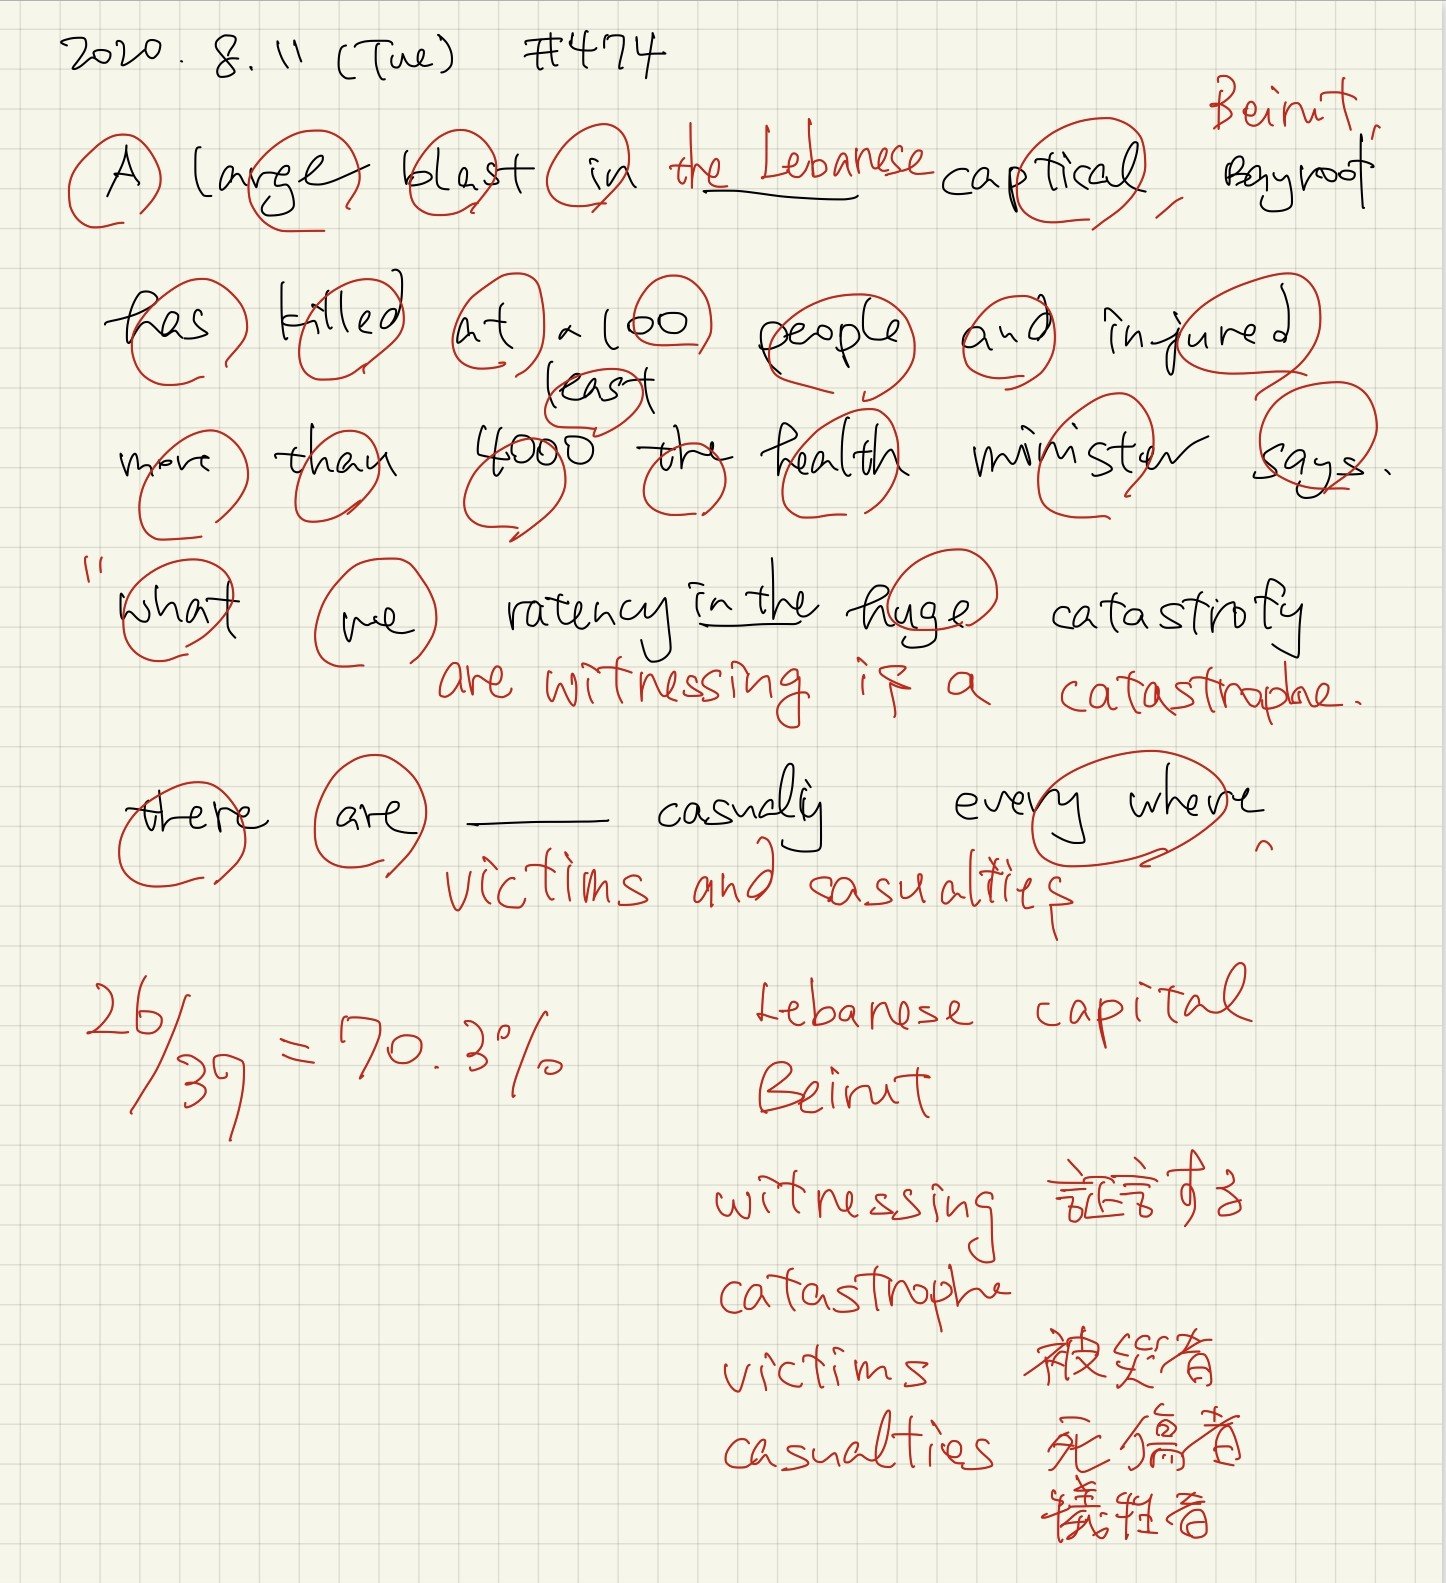 2020. 8. 11 (Tue) #474
Beirut,
A large blast in the Lebanese captical, Bayroot
has killed at 100 people and injured
least
more than 4000 the health minister says.
"what we ratency in the huge catastrofy
are witnessing is a catastrophe.
there are ____ casualiy every where
victims and casualties
26/37 = 70.3%
Lebanese capital
Beirut
witnessing 証言する
catastrophe
victims 被災者
casualties 死傷者
犠牲者